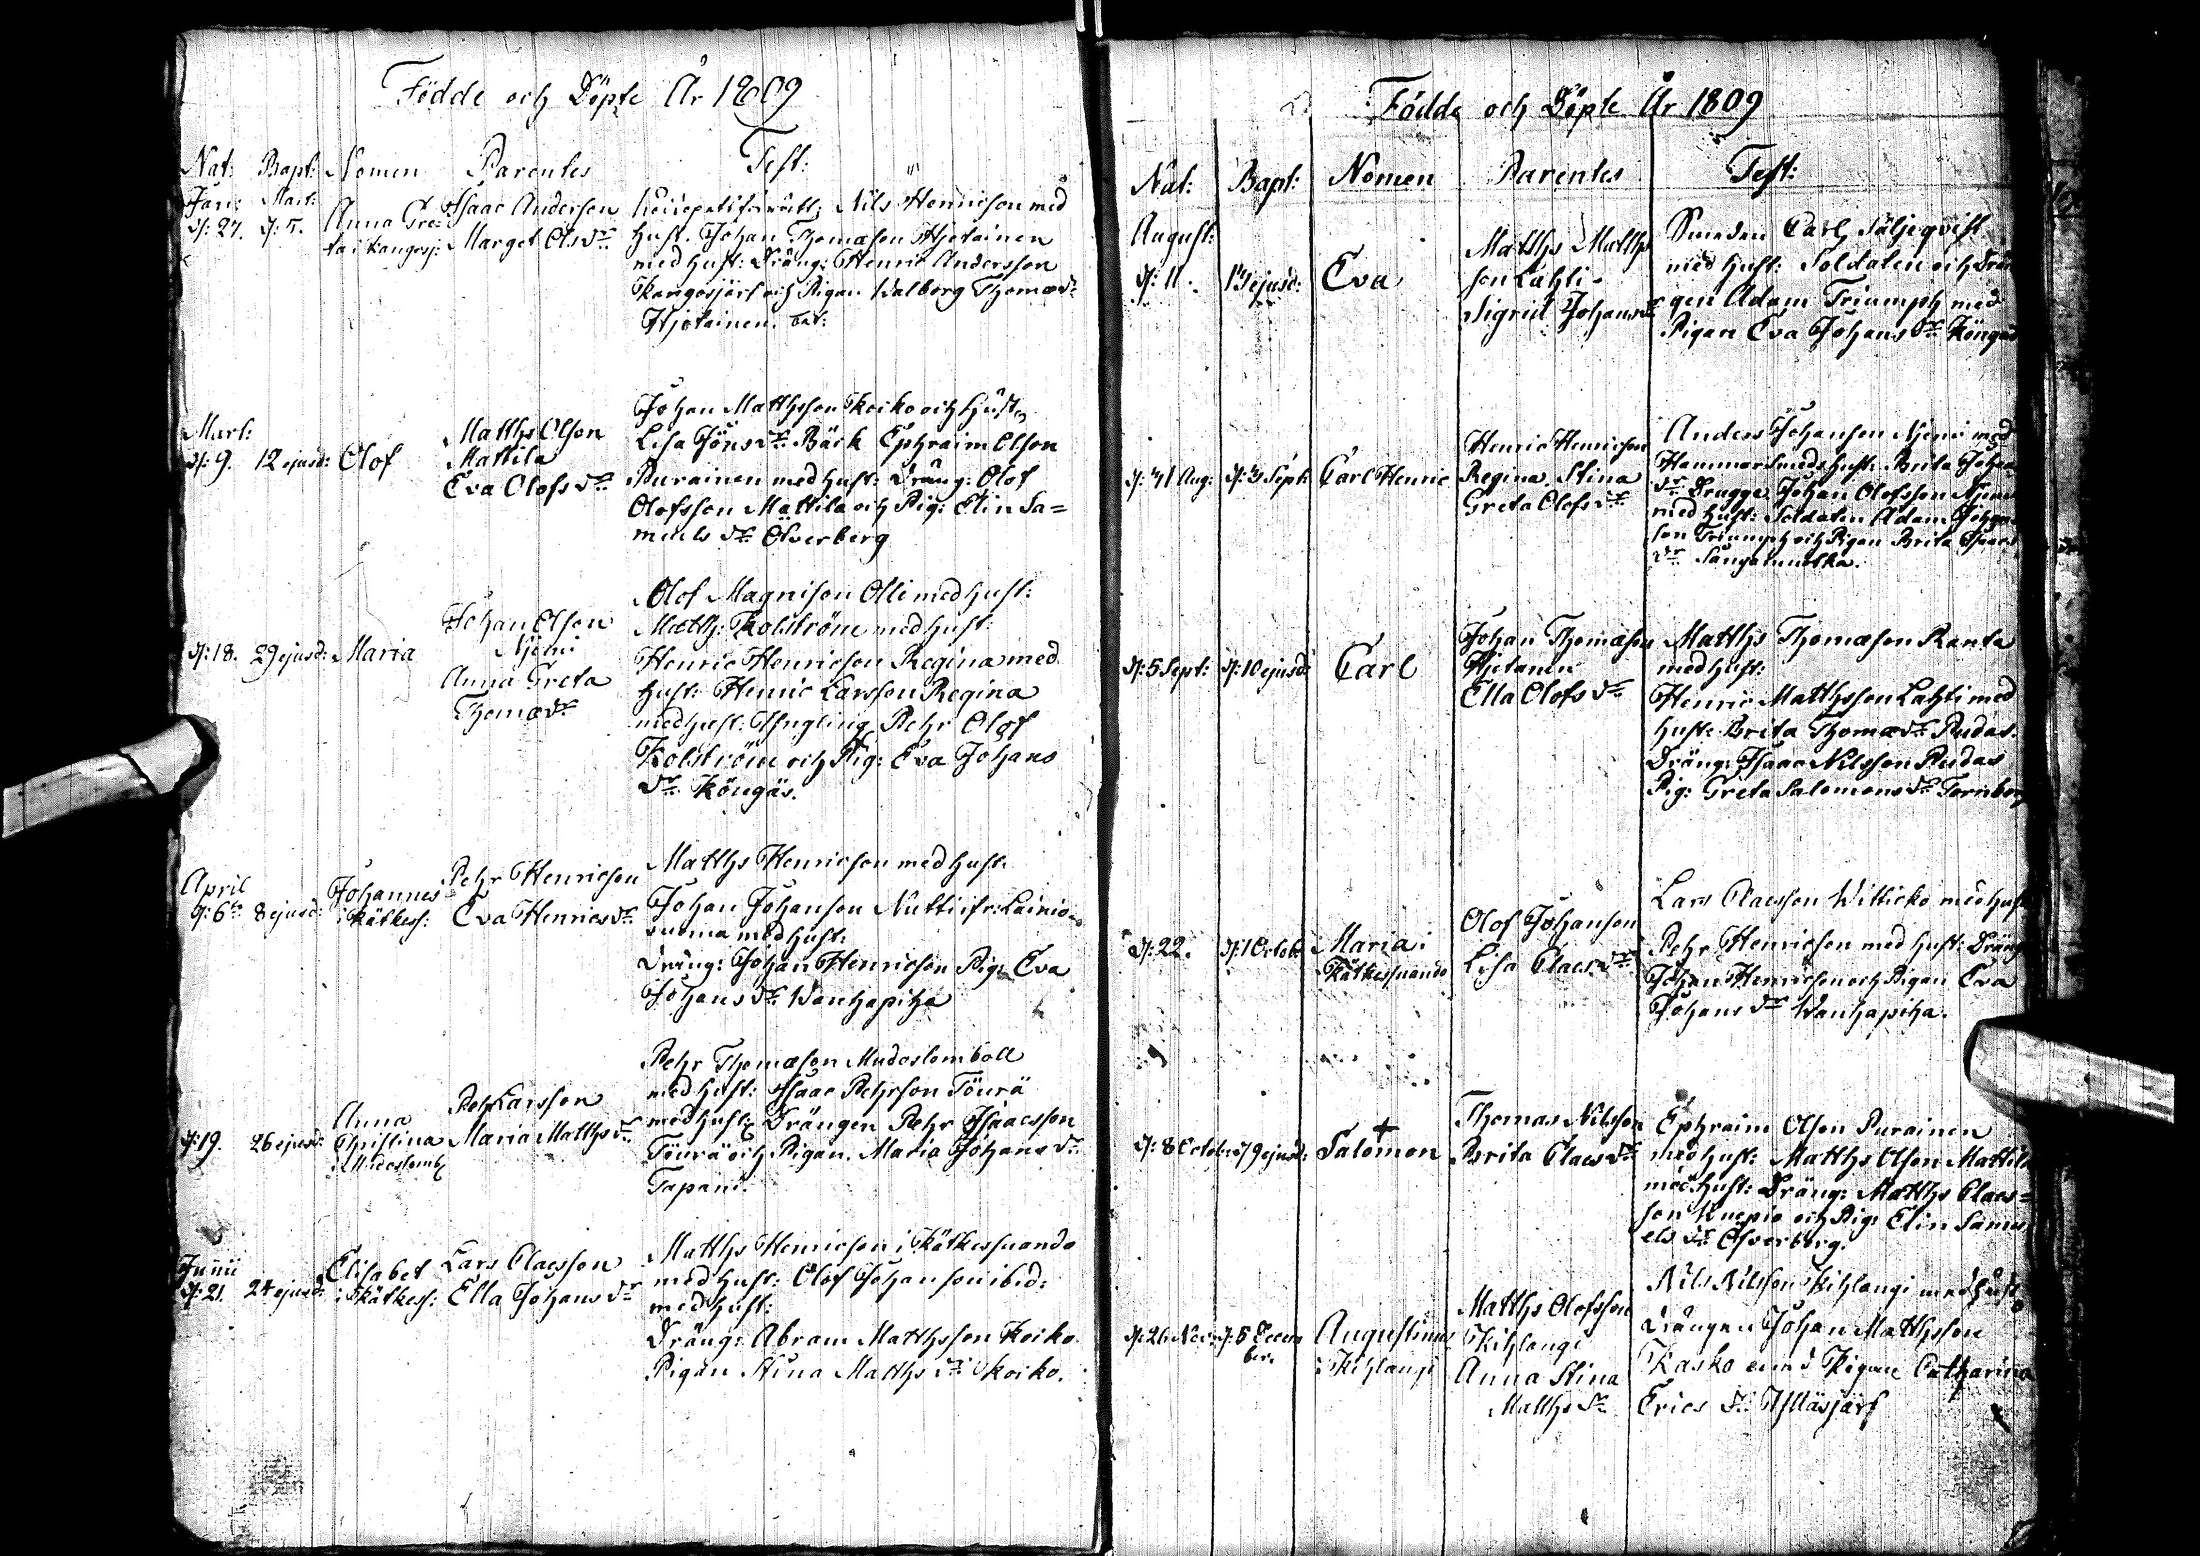 Födde och Döpte År 1809
Nat: Bapt: Nomen Parentes Test:
Jan: Mart:
d: 27. d: 5. Anna Gre= Isaac Anderson Nils Henricson med
ta i kangosj: Marget Ols dr hust. Johan Thomason Hjetainen
med hust: Dräng: Henric Andersson
Kangosjärf och Pigan Walborg Thomæ dr
Hjetainen.
Mart:
d: 9. 12 ejusd: Olof Matths Olson
Mattila
Eva Olofs dr
Johan Matthsson Koiko och hust.
Lisa Jöns dr Bäck Ephraim Olson
Purainen med hust: Dräng: Olof
Olofsson Mattila och Pig: Elin Sa=
muels dr Ölverberg
d: 18. 29 ejusd: Maria Johan Olson
Niemi
Anna Greta
Thomæ dr
Olof Magnison Olli med hust:
Matth: Kolström med hust:
Henric Henricson Regina med
hust: Henric Larsson Regina
med hust: Yngling Pehr Olof
Kolström och Pig: Eva Johans
dr Köngäs.
April
d: 6te 8 ejusd: Johannes Pehr Henricson
i Kätkess: Eva Henrics dr
Matths Henricson med hust.
Johan Johanson Nutti ifr: Lainio
med hust:
Dräng: Johan Henricson Pig: Eva
Johans dr Wanhapiha
d: 19. 26 ejusd: Anna
Christina
i Mudoslomb
Pehr Larsson
Maria Matths dr
Pehr Thomæson Mudoslomboll
med hust: Isaac Pehrson Töurä
med hust: Drängen Pehr Isaacsson
Töurä och Pigan Maria Johans dr
Tapani.
Junii
d: 21. 24 ejusd: Elisabet Lars Claesson
i Kätkess: Ella Johans dr
Matths Henricson i Kätkessuando
med hust: Olof Johanson ibid:
med hust:
Dräng: Abram Matthsson Koiko
Pigan Stina Matths dr Koiko.
Födde och Döpte År 1809
Nat: Bapt: Nomen Parentes Test:
August:
d: 11. 13 ejusd: Eva Matths Matths
son Lahti
Sigrid Johans dr
Smeden Carl Säljeqvist
med hust: Soldaten och Drän
gen Adam Triumph med
Pigan Eva Johans dr Köngäs
d: 31 Aug: d: 3 Sept: Carl Henric Henric Henricson
Regina Stina
Greta Olofs dr
Anders Johanson Niemi med
Hammarsmeds hust: Brita Johans
dr Drugge, Johan Olofsson Niemi
med hust: Soldaten Adam Johan
son Triumph och Pigan Brita Isaacs
dr
d: 5 Sept: d: 10 ejusd: Carl Johan Thomæson
Hjetanen
Ella Olofs dr
Matths Thomæson Ranta
med hust:
Henric Matthsson Lahti med
hust: Brita Thomæ dr Rudas.
Dräng: Isaac Nilsson Rudas
Pig: Greta Salomons dr Tornberg
d: 22. d: 1 Octob: Maria i
Kätkessuando
Olof Johanson
Lisa Claes dr
Lars Claesson Witticko med hust
Pehr Henricson med hust: Dräng
Johan Henricson och Pigan Eva
Johans dr Wanhapiha.
d: 8 Octob: d: 9 ejusd: Salomon Thomas Nilsson
Brita Claes dr
Ephraim Olson Purainen
med hust: Matths Olson Mattila
med hust: Dräng: Matths Claes=
son Kuopio och Pig: Elin Samu
els dr Ölverberg.
d: 26 Nov: d: 5 Decem
ber. Augustinus
i Kihlangi
Matths Olofsson
Kihlangi
Anna Stina
Matths dr
Nils Nilsson Kihlangi med hust
Drängen Johan Matthsson
Kasko och Pigan Catharina
Erics dr Ylläsjärf